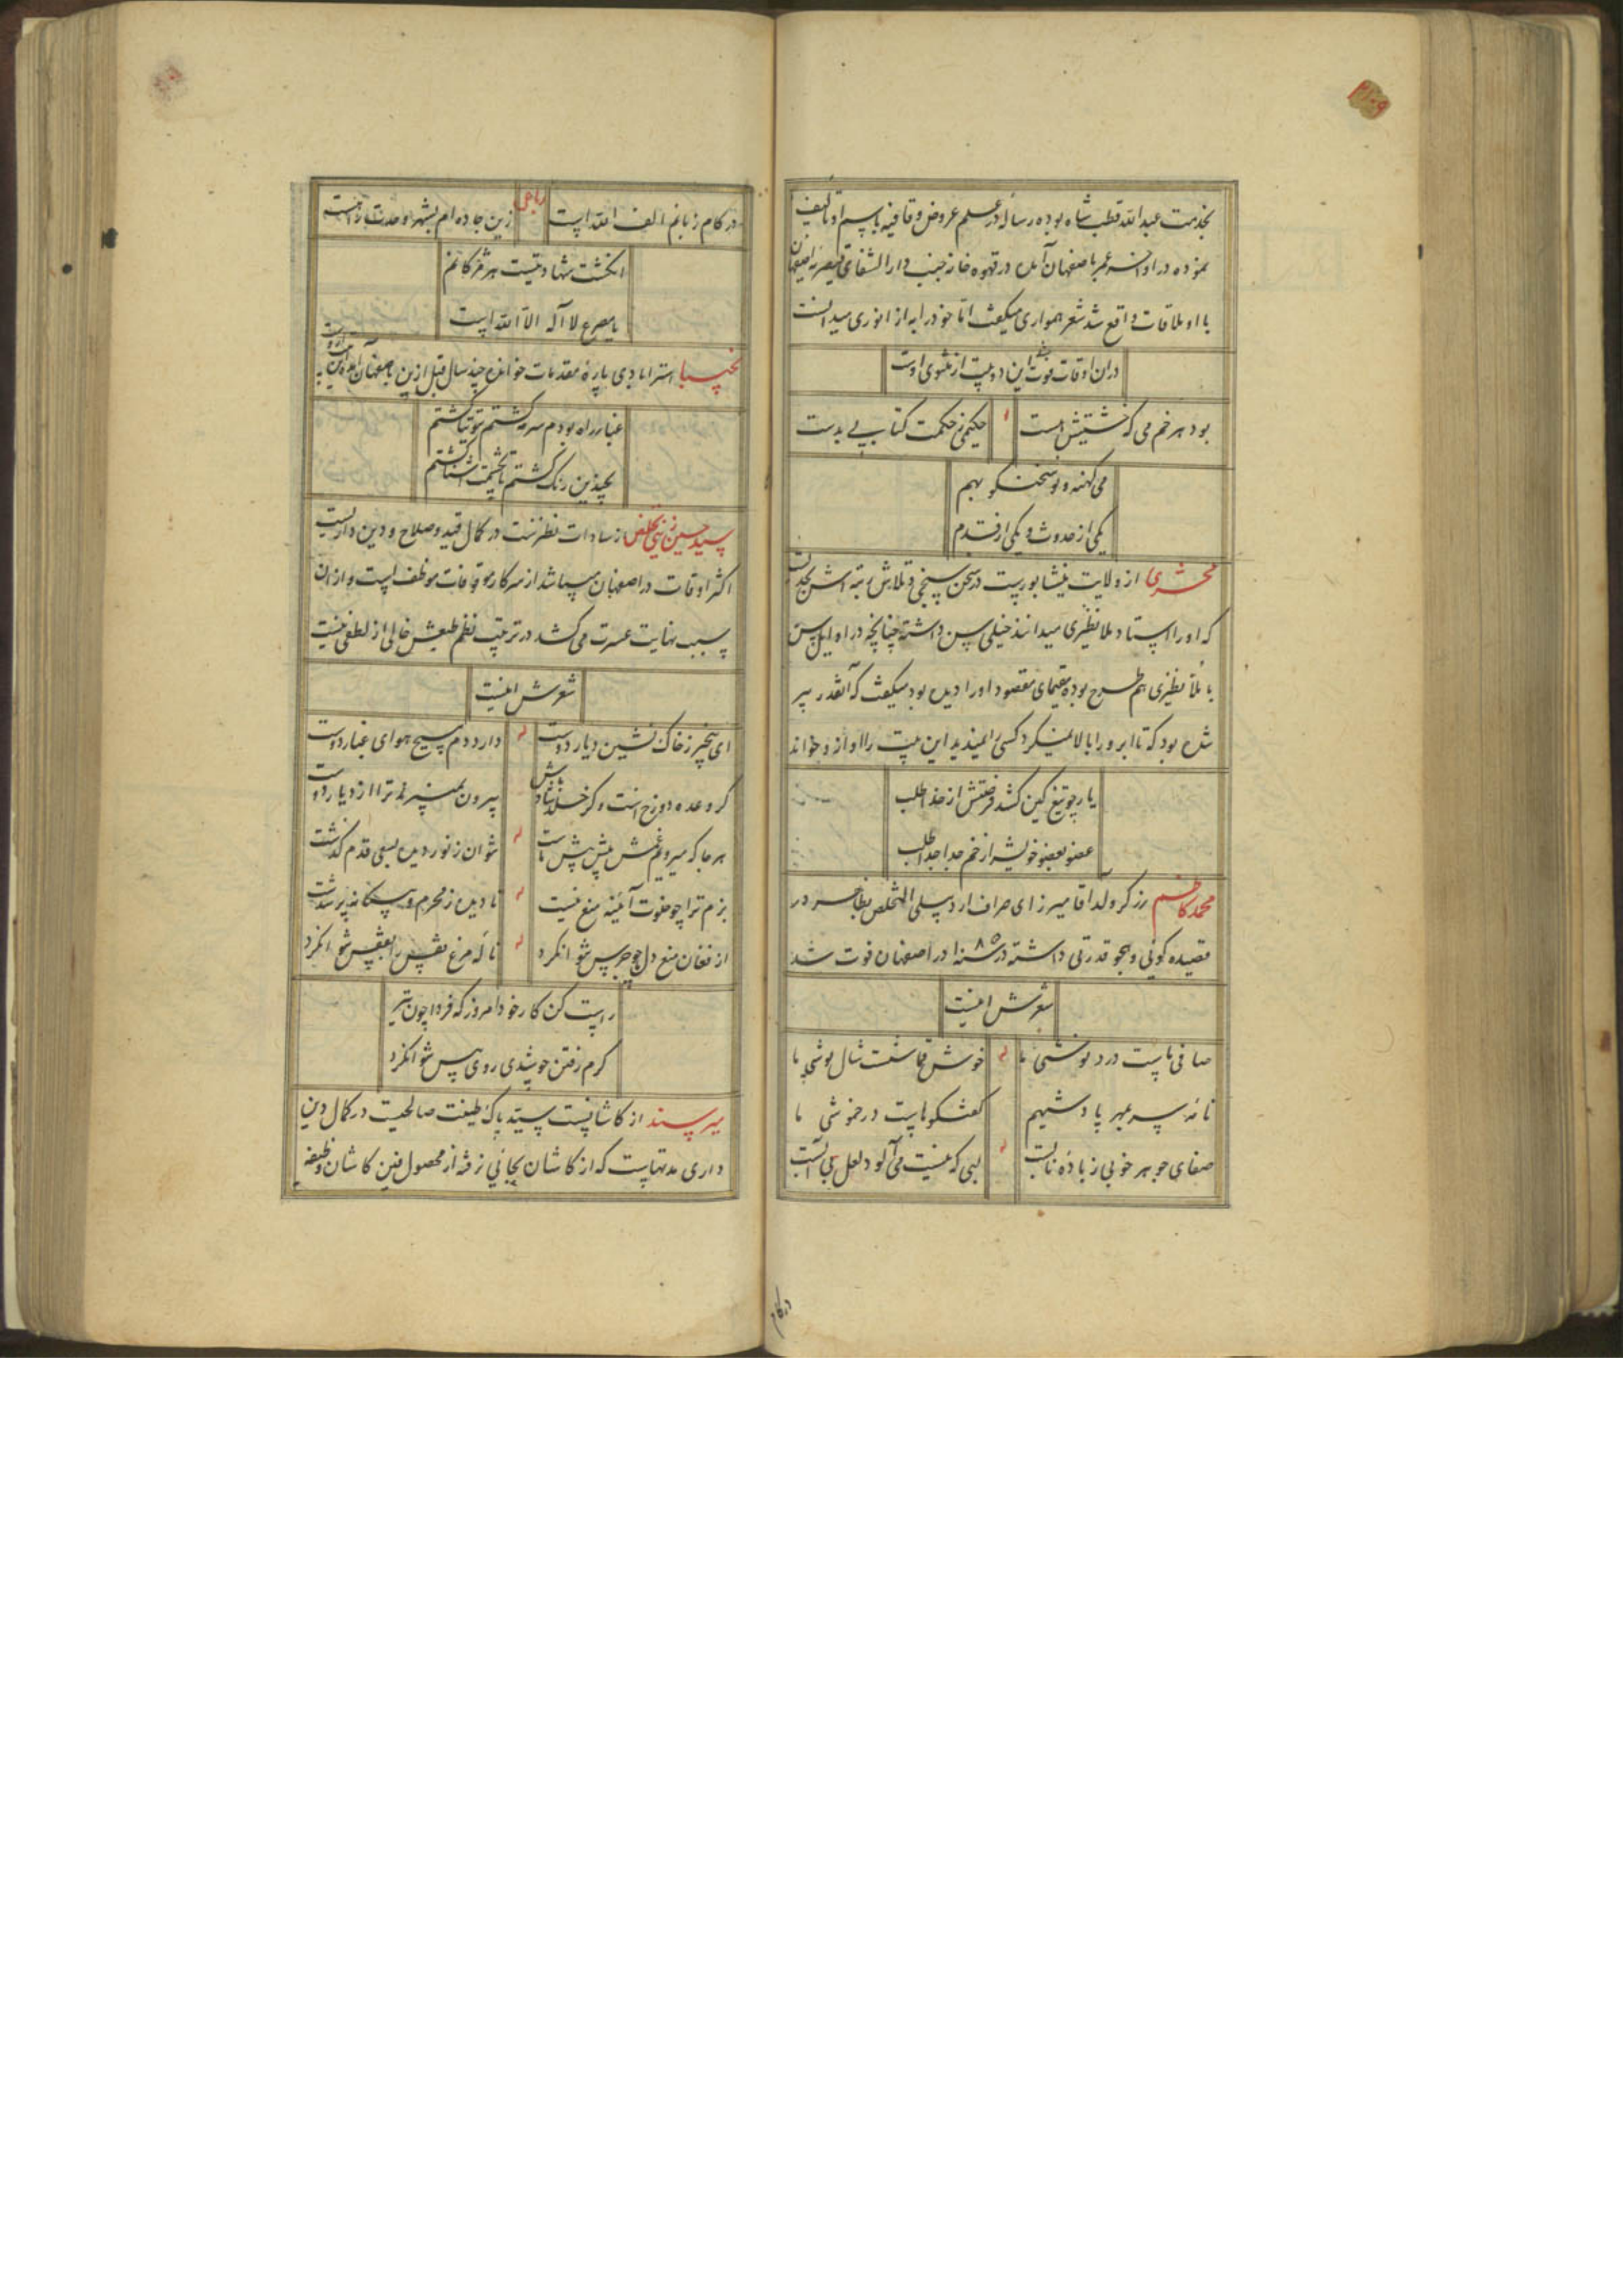 بخدمت عبد الله قطب شاه بوده رساله در علم عروض و قافیه باسم او تالیف
نموده در اواخر عمر باصفهان آمده در قهوه خانه جنب دار الشفای قیصریه اصفهان
با او ملاقات واقع شد شعر همواری میگفت اما خود را به از انوری میدانست
در ان اوقات فوت شد این دو بیت از مثنوی اوست
بود هر خم می که خشتیش هست
حکیمی ز حکمت کتابی بدست
می کهنه و نو سخنگو بهم
یکی از حدوث و یکی از قدم
محشری از ولایت نیشابورست در سخن سنجی و تلاش رتبه اش بحدیست
که او را استاد ملا نظیری میدانند خیلی سن داشته چنانچه در اوایل سن
با ملا نظیری هم طرح بوده مقیمای مقصود او را دیده بود میگفت که آنقدر پیر
شده بود که تا ابرو را بالا نمیکرد کسی را نمیدید این بیت را او از و خواند
یار چو تیغ کین کشد فرصتش از خدا طلب
عضو بعضو خویش را زخم جدا جدا طلب
محمد کاظم زرگر ولد آقا میرزای صراف اردبیلی المتخلص بظاهر در
قصیده کوئی و هجو قدرتی داشته در سنه ۱۰۸۵ در اصفهان فوت شد
شعرش اینست
صافی ماست درد نوشی ما
خوش قماشست شال پوشی ما
نامه سر بمهر پادشهیم
گفتگوهاست در خموشی ما
صفای جوهر خوبی ز باده نابست
لبی که نیست می آلود لعل بی آبست
در کام
در کام زبانم الف الله است
رباعی
زین جاده ام بشهر وحدت راهست
انگشت شهادتیست هر مژگانم
یا مصرع لا اله الا الله است
نجیبا استرابادی پاره مقدمات خوانده چند سال قبل ازین باصفهان آمده این بیت ازوست
غبار راه بودم سرمه گشتم توتیا گشتم
بچندین رنگ گشتم تا بچشمت آشنا گشتم
سید حسین زینتی تخلص از سادات نطنزست در کمال قید و صلاح و دین داریست
اکثر اوقات در اصفهان میباشد از سرکار موقوفات موظف است و از ان
سبب نهایت عسرت می کشد در ترتیب نظم طبعش خالی از لطفی نیست
شعرش اینست
ای بیخبر ز خاک نشین دیار دوست
دارد دم مسیح هوای غبار دوست
گر وعده دوزخ است و گر خلد شاد باش
بیرون نمی برند ترا از دیار دوست
هر جا که میرویم غمش پیش پیش ماست
نتوان ز نور دیده بسعی قدم گذشت
بزم ترا چو خلوت آئینه منع نیست
تا دیده ز محرم و بیگانه پر شدست
از فغان منع دل چو جرس نتوانکرد
ناله مرغ قفس را بقفس نتوانکرد
راست کن کار خود امروز که فردا چون تیر
گرم رفتن چو شدی روی بپس نتوانکرد
میر سند از کاشانست سید پاک طینت صالحیت در کمال دین
داری مدتهاست که از کاشان بجائی نرفته از محصول فین کاشان وظیفه